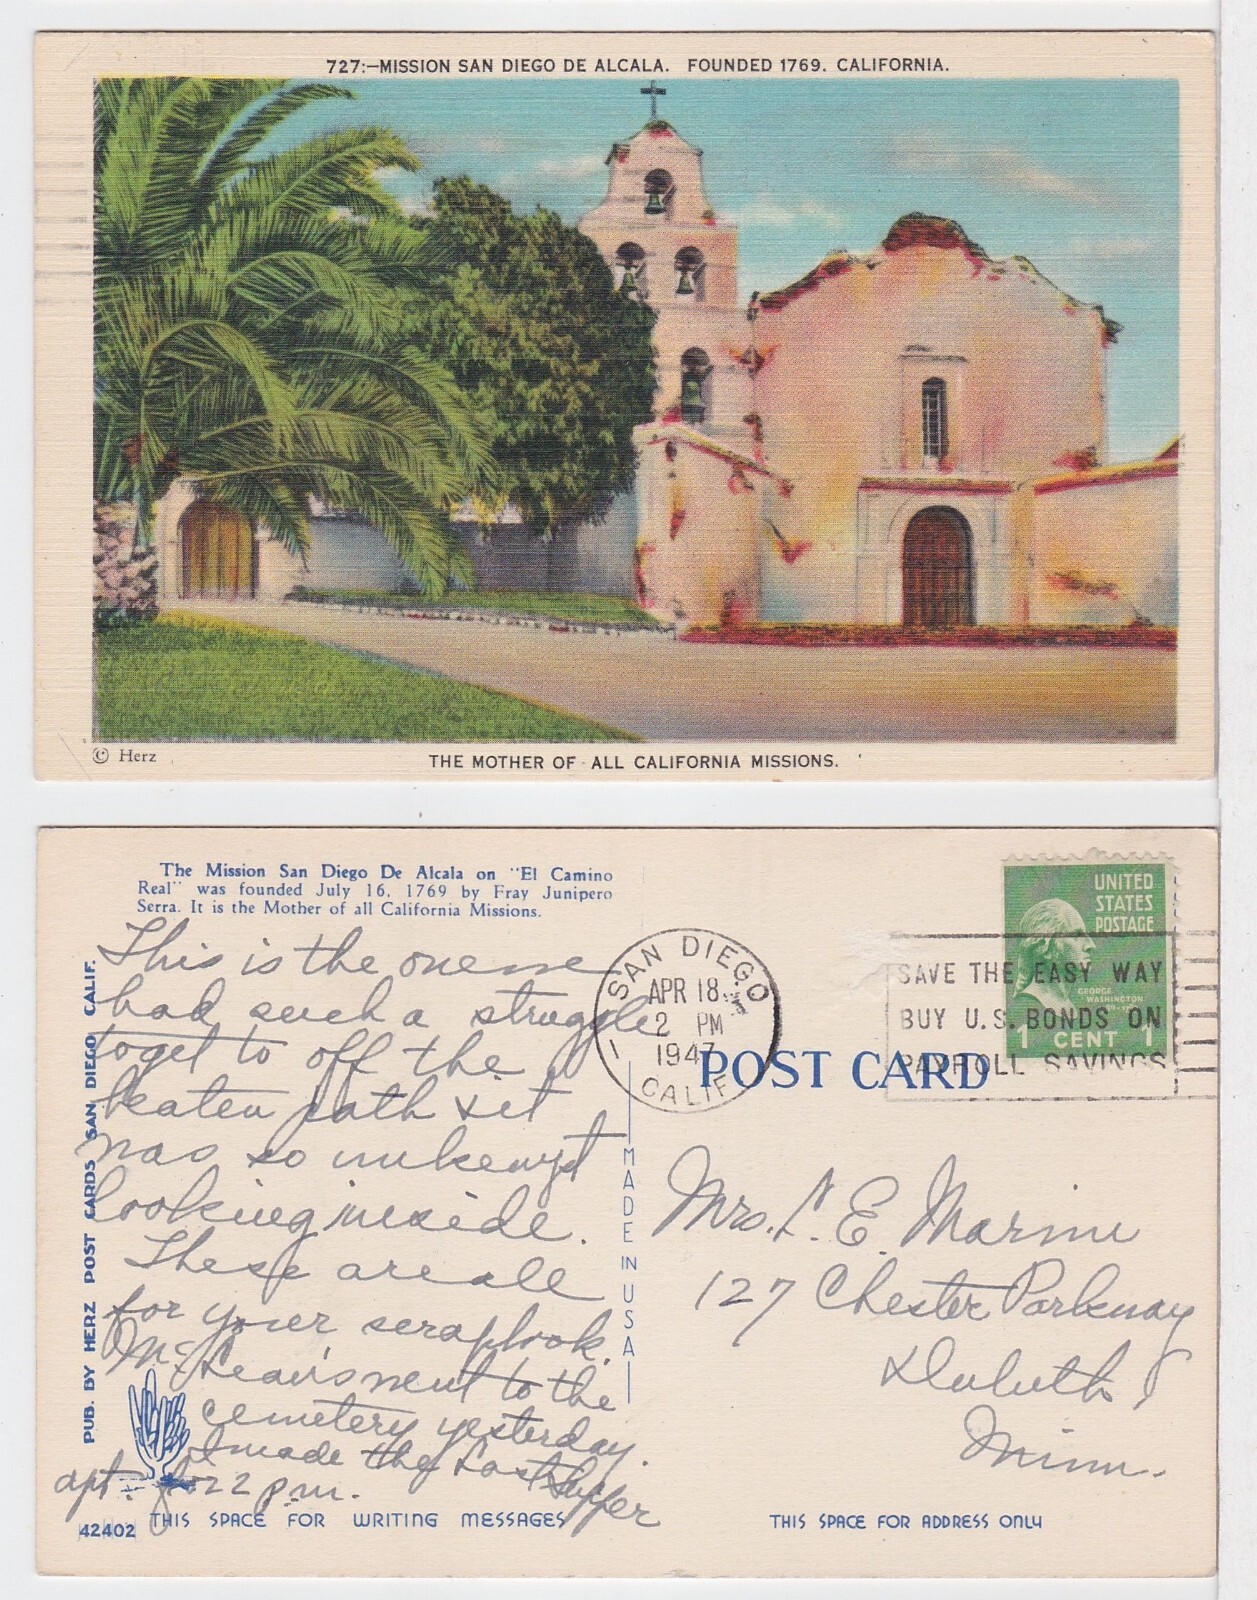 727:-MISSION SAN DIEGO DE ALCALA. FOUNDED 1769. CALIFORNIA.
© Herz
THE MOTHER OF ALL CALIFORNIA MISSIONS.
The Mission San Diego De Alcala on "El Camino
Real" was founded July 16, 1769 by Fray Junipero
Serra. It is the Mother of all California Missions.
This is the one we
had such a struggle
to get to off the
beaten path & it
was so unkempt
looking inside.
These are all
for your scrapbook.
went to the
cemetery yesterday.
I made the Last Supper
at 2 p.m.
PUB. BY HERZ POST CARDS SAN DIEGO CALIF.
42402
THIS SPACE FOR WRITING MESSAGES
MADE IN USA
SAN DIEGO
APR 18
2 PM
1947
CALIF
POST CARD
UNITED
STATES
POSTAGE
GEORGE
WASHINGTON
1 CENT 1
SAVE THE EASY WAY
BUY U.S. BONDS ON
PAYROLL SAVINGS
Mrs. E. Marini
127 Chester Parkway
Duluth
Minn.
THIS SPACE FOR ADDRESS ONLY